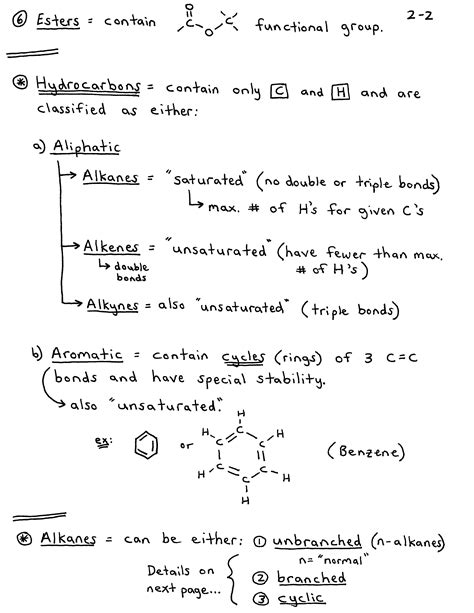 2-2
⑥ Esters = contain O C O C functional group.
* Hydrocarbons = contain only C and H and are
classified as either:
a) Aliphatic
→ Alkanes = "saturated" (no double or triple bonds)
↳ max. # of H's for given C's
→ Alkenes = "unsaturated" (have fewer than max.
↳ double bonds
# of H's)
→ Alkynes = also "unsaturated" (triple bonds)
b) Aromatic = contain cycles (rings) of 3 C=C
bonds and have special stability.
→ also "unsaturated."
ex: or
H
H C H
C C
C C
H C H
H
(Benzene)
* Alkanes = can be either: ① unbranched (n-alkanes)
n = "normal"
Details on
next page...
② branched
③ cyclic